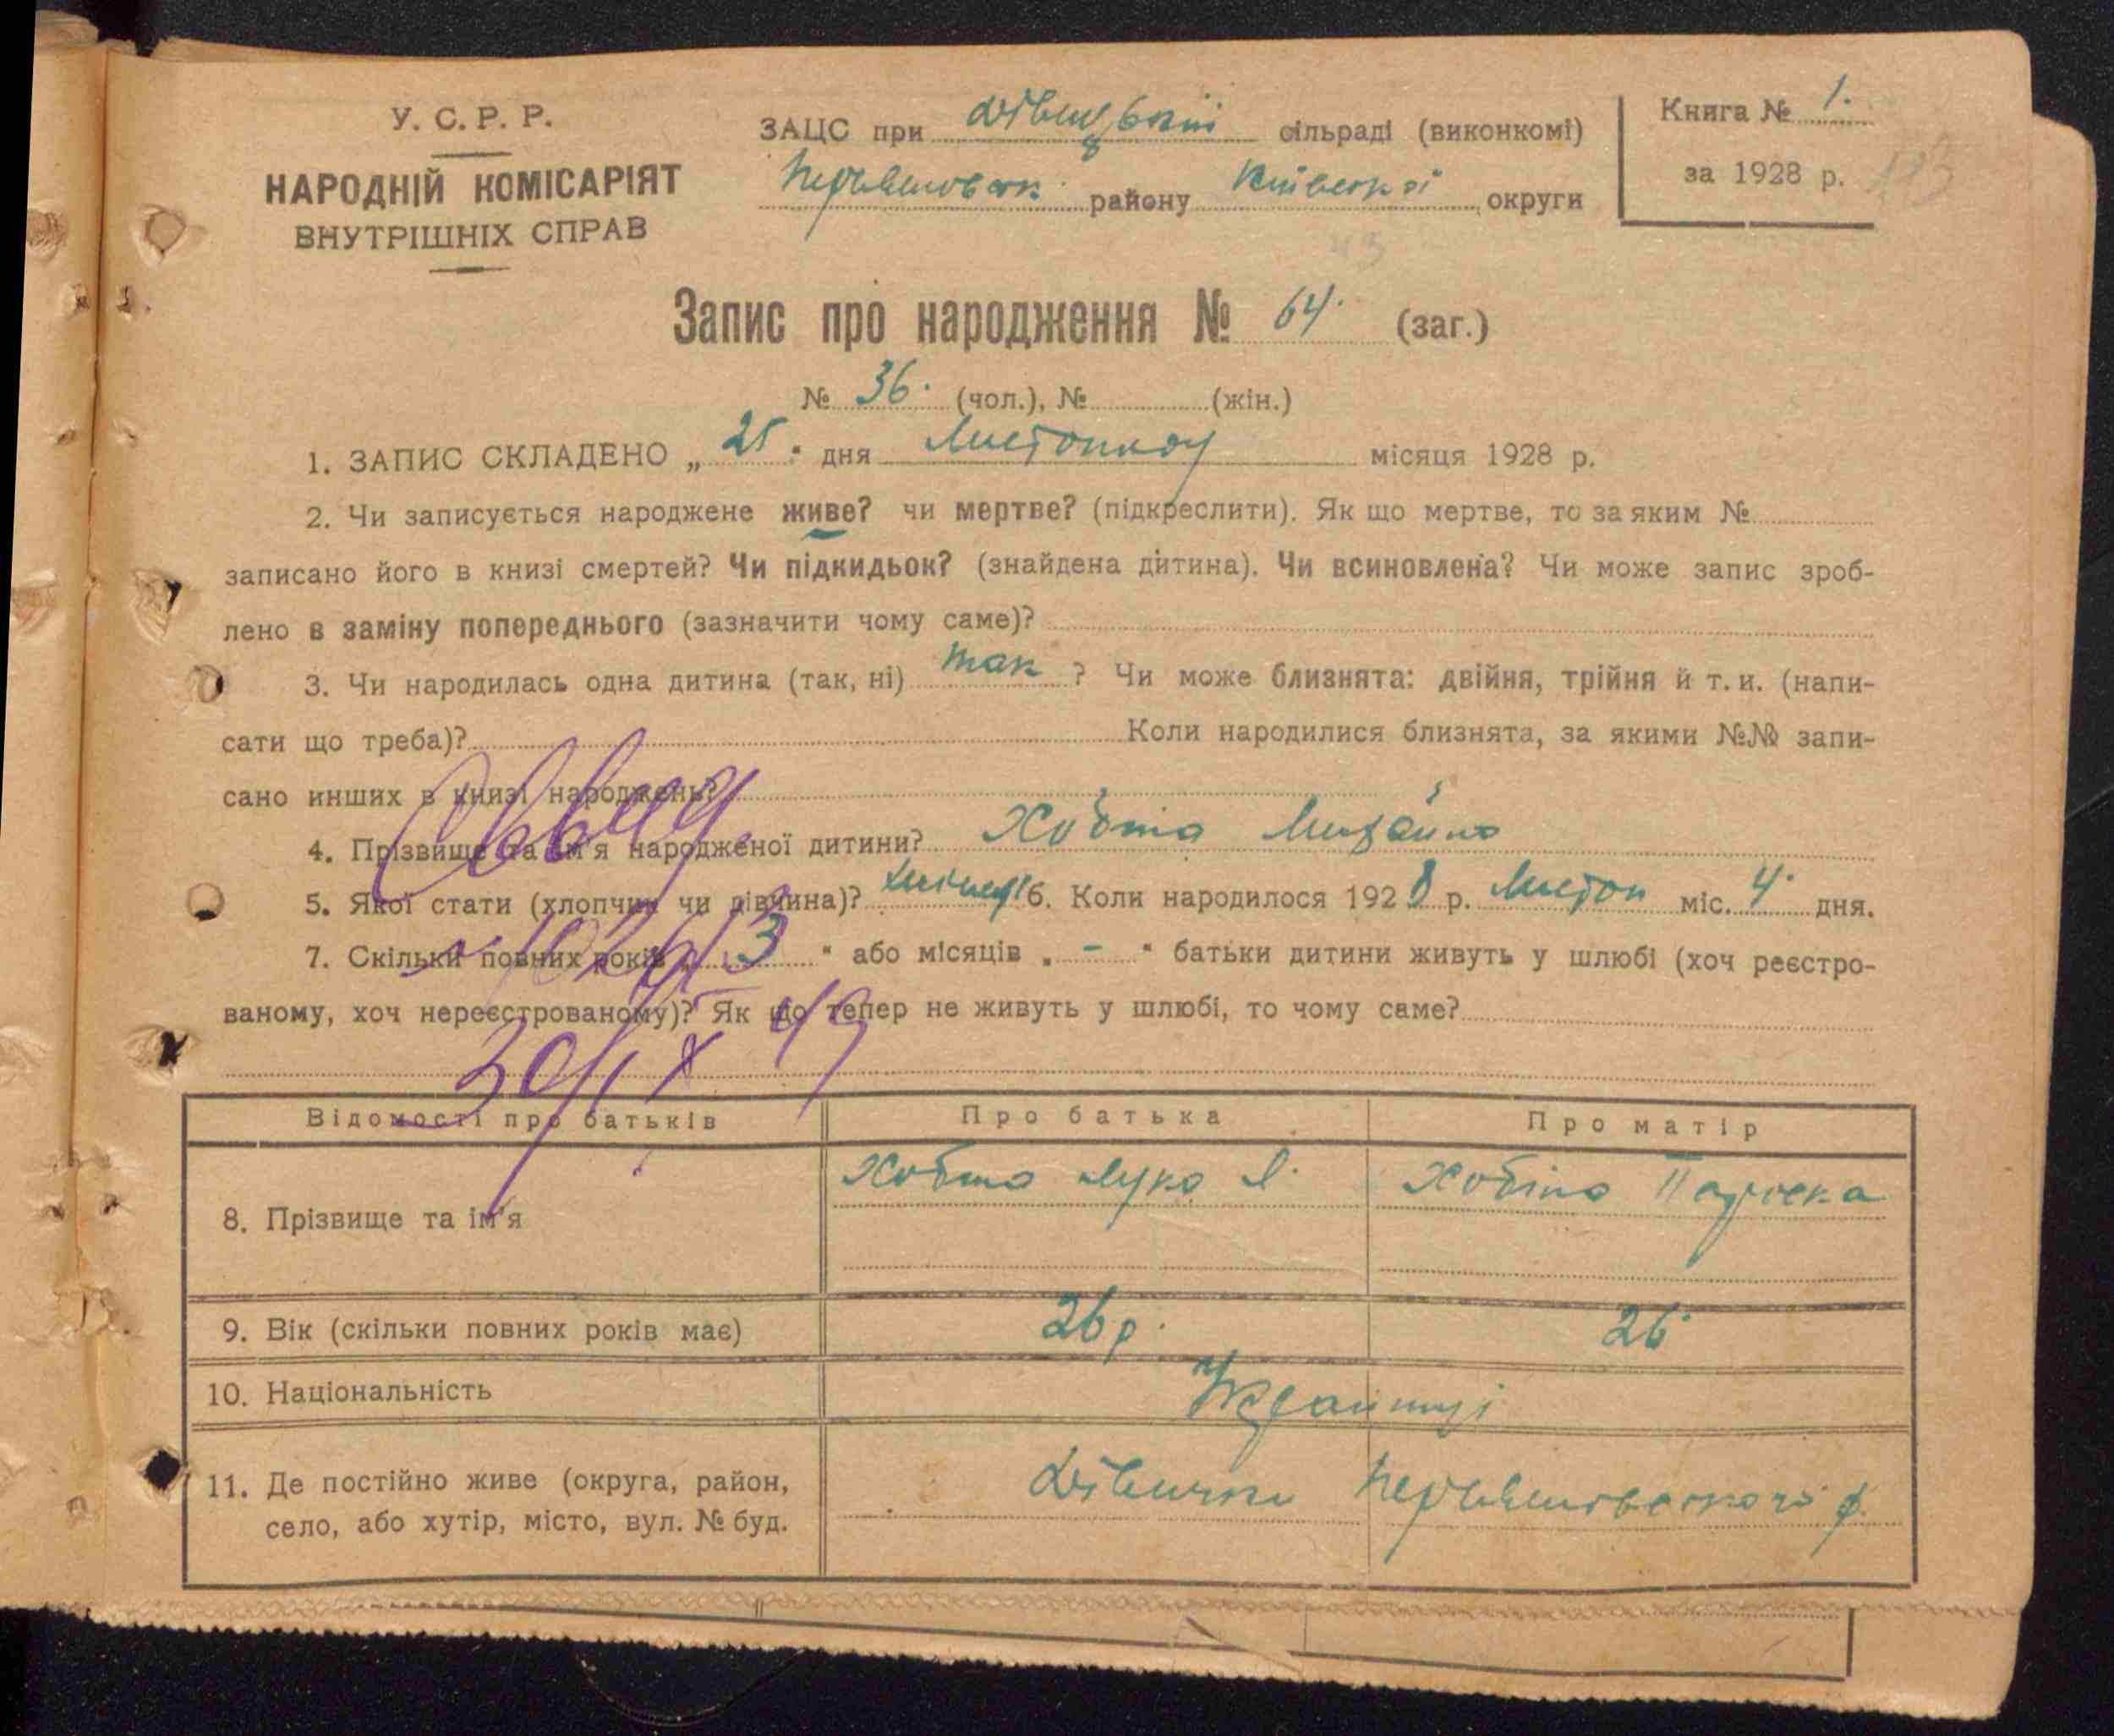 У. С. Р. Р.
НАРОДНІЙ КОМІСАРІЯТ
ВНУТРІШНІХ СПРАВ
ЗАЦС при Дівицькій сільраді (виконкомі)
району Київської округи
Книга № 1.
за 1928 р.
Запис про народження № 64. (заг.)
№ 36. (чол.), № (жін.)
1. ЗАПИС СКЛАДЕНО „ 25 " дня Листопаду місяця 1928 р.
2. Чи записується народжене живе? чи мертве? (підкреслити). Як що мертве, то за яким №
записано його в книзі смертей? Чи підкидьок? (знайдена дитина). Чи всиновлена? Чи може запис зроб-
лено в заміну попереднього (зазначити чому саме)?
3. Чи народилась одна дитина (так, ні) так ? Чи може близнята: двійня, трійня й т. и. (напи-
сати що треба)? Коли народилися близнята, за якими №№ запи-
сано инших в книзі народжень?
4. Прізвище та ім'я народженої дитини? Хобта Михайло
5. Якої стати (хлопчик чи дівчина)? 6. Коли народилося 1928 р. Листоп міс. 4. дня.
7. Скільки повних років „ 3 " або місяців „ - " батьки дитини живуть у шлюбі (хоч реєстро-
ваному, хоч нереєстрованому)? Як що тепер не живуть у шлюбі, то чому саме?
30/IX 49
Відомості про батьків Про батька Про матір
8. Прізвище та ім'я Хобта Лука Я. Хобта Параска
9. Вік (скільки повних років має) 26 р. 26
10. Національність Українці
11. Де постійно живе (округа, район,
село, або хутір, місто, вул. № буд.
Дівички р.